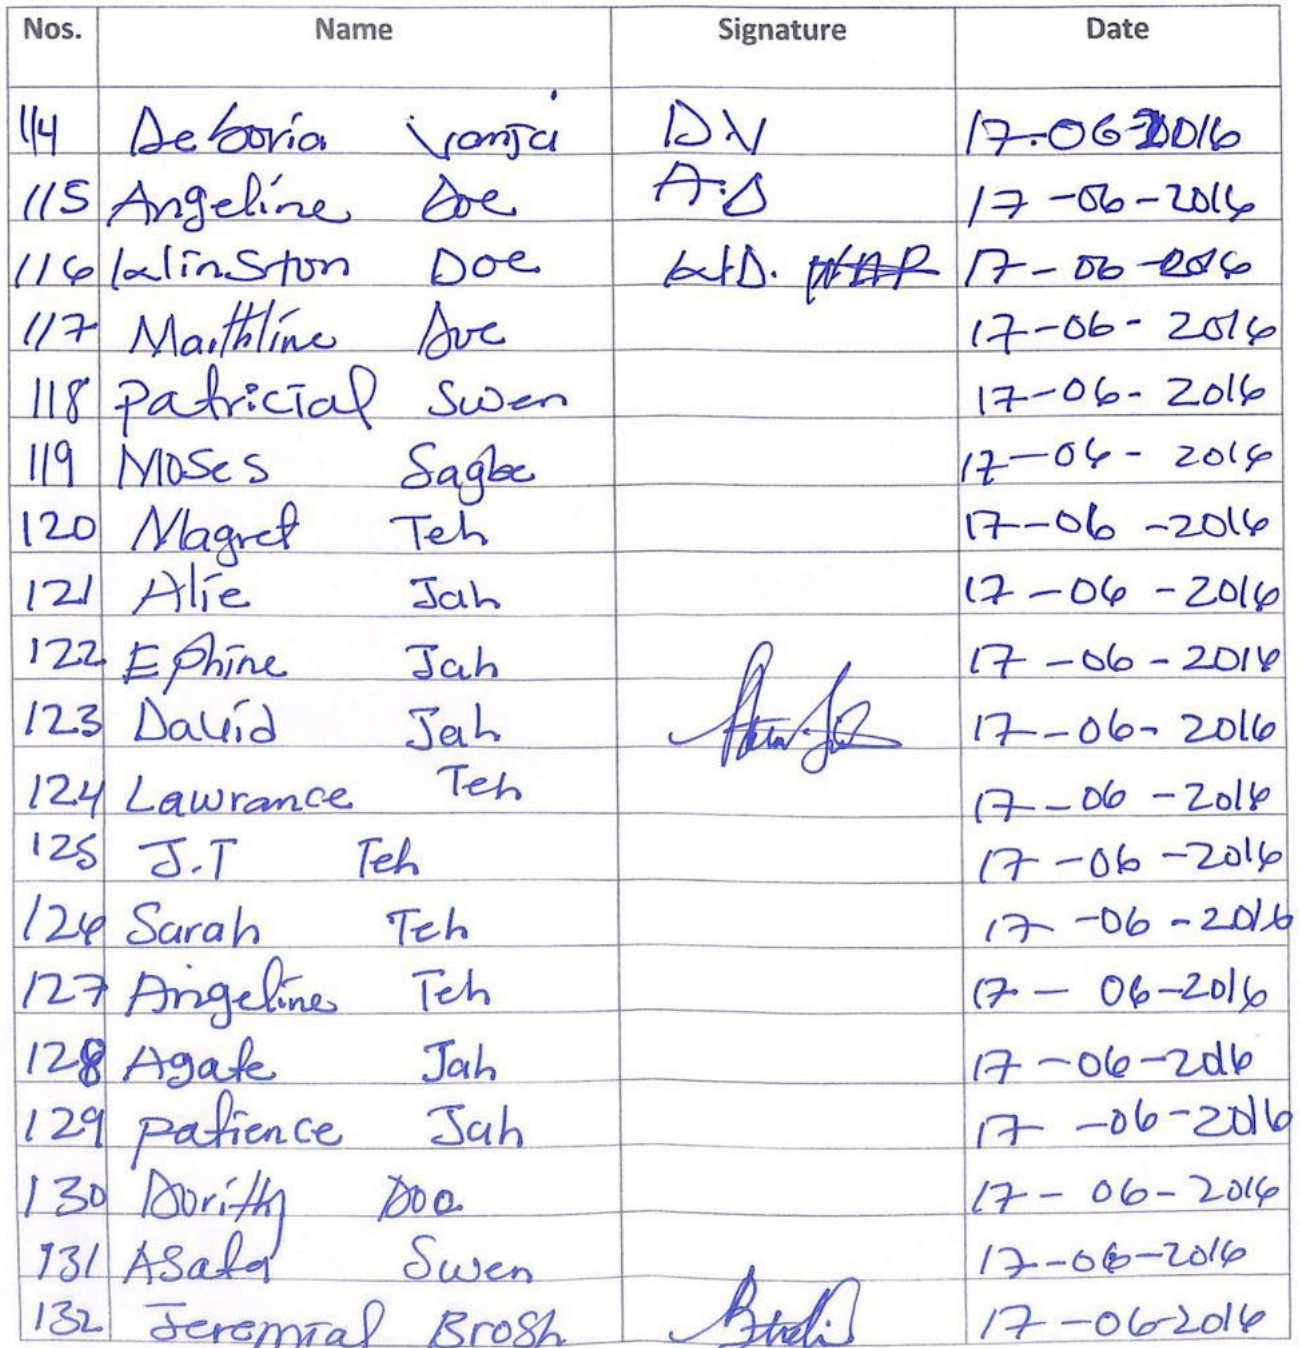 Nos. Name Signature Date
114 Deboria Vamja D.V 17-06-2016
115 Angeline Doe A.D 17-06-2016
116 Winston Doe W.D. 17-06-2016
117 Marthline Doe 17-06-2016
118 patricial Swen 17-06-2016
119 Moses Sagbe 17-06-2016
120 Magret Teh 17-06-2016
121 Alie Jah 17-06-2016
122 Ephine Jah 17-06-2016
123 David Jah 17-06-2016
124 Lawrance Teh 17-06-2016
125 J.T Teh 17-06-2016
126 Sarah Teh 17-06-2016
127 Angeline Teh 17-06-2016
128 Agate Jah 17-06-2016
129 patience Jah 17-06-2016
130 Dorithy Doe 17-06-2016
131 Asata Swen 17-06-2016
132 Jeremial Brosh 17-06-2016